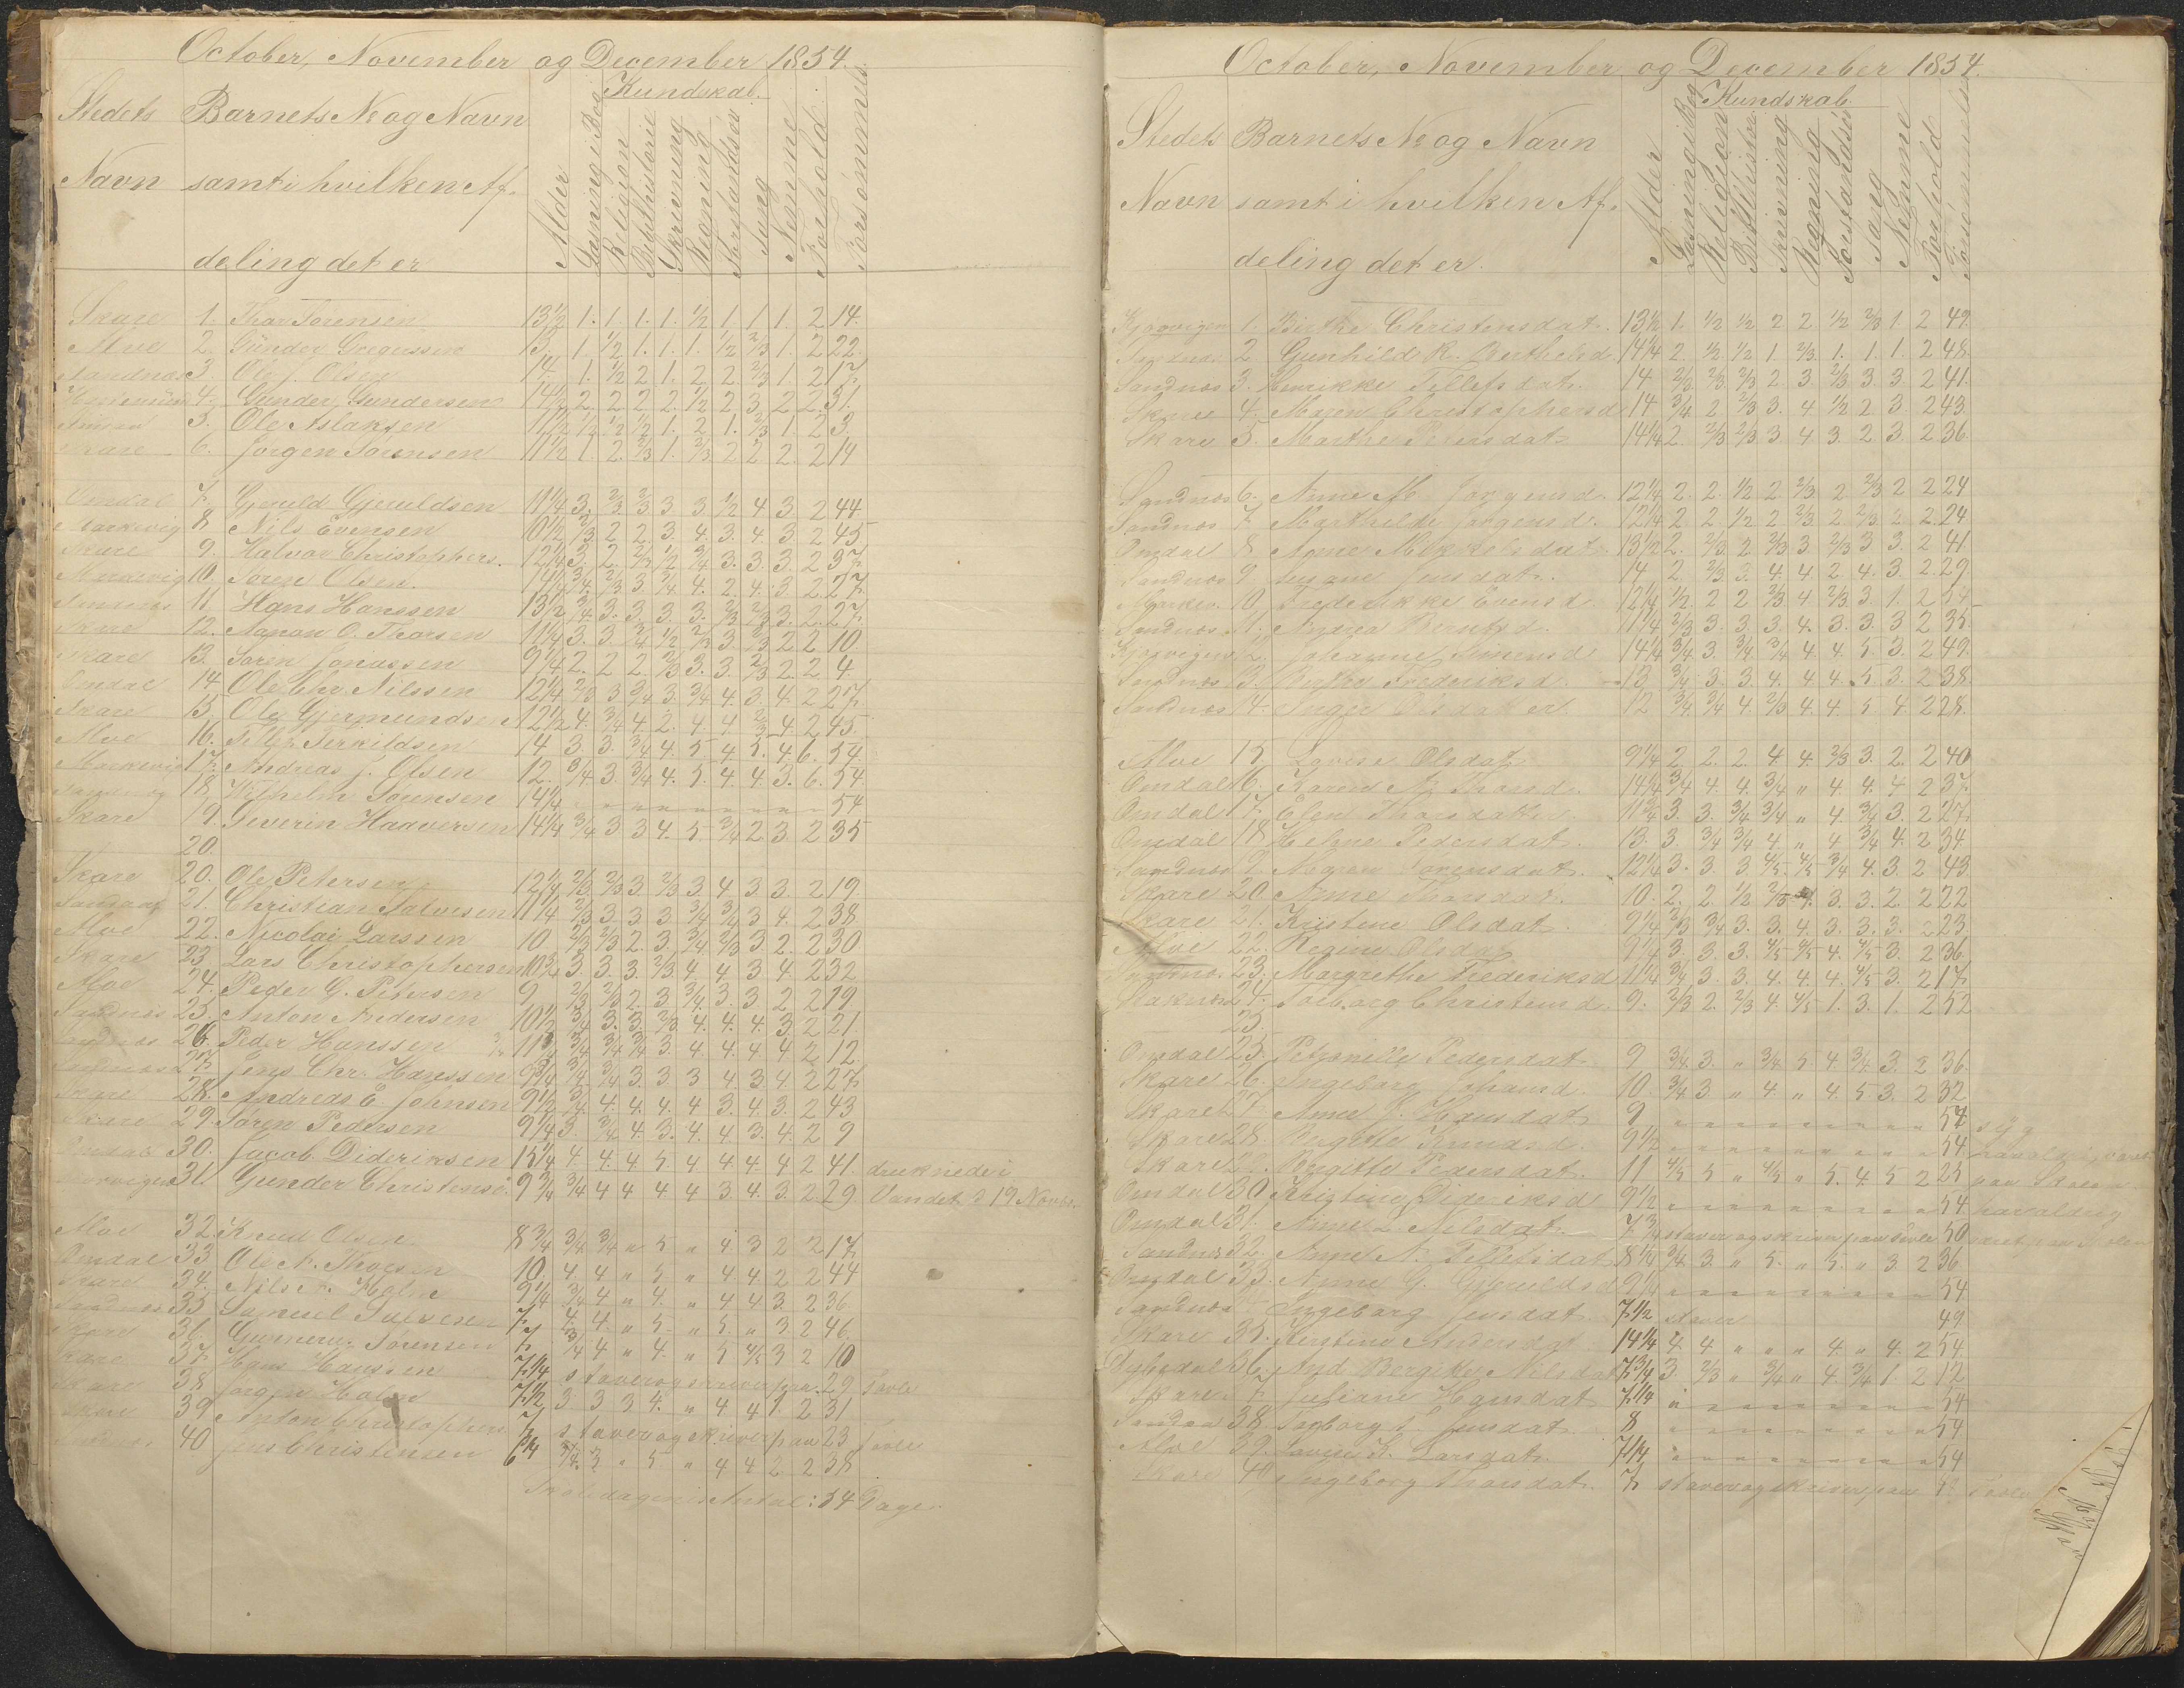 October, November og December 1854.
Kundskab.
Stedets Barnets No og Navn
Navn samt i hvilken Af-
deling det er
Alder Læsning i Bog Religion Bibelhistorie Skrivning Regning Forstandsöv Sang Nemme Forhold Forsömmels.
Skare 1. Thor Sörensen 13½ 1. 1. 1. 1. ½ 1 1 1. 2 14.
Moe 2. Gunder Gregerssen 13. 1. ½ 1. 1. 1. ½ ⅔ 1. 2 22.
Sandnæs 3. Ole J. Olsen 14 1. ½ 2 1. 2 2. ⅔ 1. 2 17.
4. Gunder Gundersen 14½ 2. 2 2 2. ½ 2 3 2 2 31.
5. Ole Aslaksen 11½ ½ ½ ½ 1. 2 1. ⅔ 1 2 3.
Skare 6. Jörgen Sörensen 11½ 1. 2. ⅔ 1. ⅔ 2 2 2. 2 14
Omdal 7. Gjeruld Gjeruldsen 11¼ 3. ⅔ ⅔ 3 3 ½ 4 3 2 44
Markevig 8 Nils Evensen 10½ ⅔ 2 2. 3. 4. 3. 4 3. 2 45
Skare 9. Halvor Christophers. 12¼ 3. 2 ⅔ ½ ¾ 3. 3. 3 2 37.
10. Sören Olsen. 14¼ ¾ ⅔ 3 ¾ 4. 2. 4. 3 2 27.
Sandnæs 11. Hans Hanssen 13½ ¾ 3. 3 3. 3. ⅔ ⅔ 3. 2. 27.
Skare 12. Aanon O. Thorsen 11¼ 3. 3 ¾ ½ ⅔ 3 ⅔ 2 2 10.
Skare 13. Sören Jonassen 9¼ 2. 2 2. ⅔ 3. 3. ⅔ 2. 2 4
Omdal 14 Ole Chr. Nilssen 12¼ ⅔ 3 ¾ 3. ¾ 4 3. 4. 2 27.
Skare 15 Ole Gjermundsen 12½ 4. ¾ 4 2. 4. 4 ⅔ 4 2 45.
Moe 16. Tellef Terkildsen 14 3 3. ¾ 4. 5 4 5. 4 6. 54.
Markevig 17. Andreas J. Olsen 12. ¾ 3 ¾ 4. 5. 4. 4. 3. 6. 54.
18. Wilhelm Sörensen 14¼ " " " " " " " " " 54
Skare 19. Severin Haaversen 14¼ ¾ 3 3 4. 5. ¾ 2 3 2 35
20.
Skare 20. Ole Petersen 12¼ ⅔ ⅔ 3 ⅔ 3 4. 3 3. 2 19.
Sandnæs 21. Christian Salvesen 11¼ ⅔ 3 3 3 ¾ ¾ 3 4. 2 38
Moe 22. Nicolai Larssen 10 ⅔ ⅔ 2 3. ¾ ⅔ 3 2. 2 30
Skare 23 Lars Christophersen 10¾ 3. 3. 3. ⅔ 4. 4 3 4. 2 32
Moe 24. Peder G. Petersen 9 ⅔ ⅔ 2. 3 ¾ 3. 3 2 2 19.
Sandnæs 25. Anton Andersen 10½ ¾ 3. 3. ⅔ 4. 4. 4. 3. 2 21.
Sandnæs 26. Peder Hanssen 11¾ ¾ ¾ ¾ 3. 4. 4. 4 4 2 12
Sandnæs 27. Jens Chr. Hanssen 9¾ ¾ ¾ 3. 3. 3 4 3 4. 2 27
Skare 28. Andreas E. Johnsen 9½ ¾ 4. 4. 4. 4 3. 4. 3. 2 43
Skare 29. Sören Pedersen 9¼ 3. ¾ 4. 3. 4. 4 3. 4. 2 9
Omdal 30. Jacob Dideriksen 15¼ 4 4. 4. 5. 4 4. 4. 4 2 41. druknede i
31 Gunder Christens. 9¾ ¾ 4 4 4 4 3 4. 3. 2. 29. Vandet d 19 Novbr.
Moe 32 Knud Olsen 8¾ ¾ ¾ " 5 " 4 3 2 2 17.
Omdal 33 Ole N. Thorsen 10 4. 4 " 5 " 4 4. 2 2 44
Skare 34. Nils A. Holm 9¼ ¾ 4 " 4. " 4 4 3 2 36.
Sandnæs 35 Samuel Salvesen 7 4 4. " 5. " 5. " 3 2 46.
Skare 36. Gunneru. Sörensen 7 ¾ 4 " 4. " 5 ⅘ 3 2 10
Skare 37 Hans Hanssen 7¼ staver og skriver paa 29 Tavle
Skare 38 Jörgen Holm 7½ 3 3 3 4. " 4 4 1. 2 31
Skare 39 Anton Christophers. 7 staver og skriver paa 23 Tavle
40 Jens Christensen 6¼ ¾ 3 " 5. " 4 4 2 2 38
Skoledagenes Antal: 54 Dage.
October, November og December 1854.
Kundskab
Stedets Barnets No og Navn
Navn samt i hvilken Af-
deling det er.
Alder Læsning i Bog Religion Bibelhistorie Skrivning Regning Forstandsöv Sang Nemme Forhold Forsömmelser
1. Birthe Christensdat. 13½ 1. ½ ½ 2 2 ½ ⅔ 1 2 49.
Sandnæs 2 Gunhild R. Berthelsd 14¼ 2. ½ ½ 1 ⅔ 1. 1. 1. 2 48.
Sandnæs 3. Henrikke Tellefsdat. 14 ⅔ ⅔ ⅔ 2 3 ⅔ 3 3. 2 41.
Skare 4. Maren Christophersd 14 ¾ 2 ⅔ 3. 4 ½ 2 3. 2 43
Skare 5. Marthe Petersdat. 14¼ 2. ⅔ ⅔ 3 4 3. 2 3. 2 36.
Sandnæs 6. Anne M. Jörgensd. 12¼ 2. 2. ½ 2 ⅔ 2 ⅔ 2 2 24
Sandnæs 7. Marthilde Jörgensd. 12¼ 2 2 ½ 2 ⅔ 2 ⅔ 2 2. 24
Omdal 8. Anne Mikkelsdat. 13½ 2. ⅔ 2 ⅔ 3. ⅔ 3 3. 2 41.
Sandnæs 9 Susane Jensdat. 14 2 ⅔ 3. 4. 4. 2 4. 3 2. 29.
Markev. 10. Frederikke Evensd. 12¼ ½ 2 2 ⅔ 4 ⅔ 3. 1. 2 54
Sandnæs 11. Andrea Berntsd. 11¼ ⅔ 3 3. 3. 4. 3. 3 3 2 35
12. Johanne Simensd 14¼ ¾ 3. ¾ ¾ 4 4. 5 3. 2 49.
Sandnæs 13. Birthe Frederiksd. 13 ¾ 3. 3. 4. 4 4. 5 3. 2 38.
Sandnæs 14. Inger Olsdatter. 12 ¾ ¾ 4. ⅔ 4. 4. 5 4. 2 28.
Moe 15 Lovise Olsdat. 9¼ 2. 2. 2. 4 4. ⅔ 3. 2. 2 40
Omdal 16. Karen N. Thorsd. 14¼ ¾ 4 4. ¾ " 4 4. 4 2 37.
Omdal 17. Elen Thorsdatter 11¾ 3. 3. ¾ ¾ " 4 ¾ 3. 2 27.
Omdal 18 Helene Pedersdat. 13. 3. ¾ ¾ 4. " 4 ¾ 4. 2 34
Sandnæs 19. Maren Sörensdat. 12¼ 3. 3. 3 ⅘ ⅘ ¾ 4. 3. 2 43.
Skare 20 Anne Thorsdat. 10. 2. 2. ½ ⅔ 4. 3. 3. 2. 2 22
Skare 21. Kristene Olsdat. 9¼ ⅔ ¾ 3. 3. 4. 3. 3. 3. 2 23.
Moe 22. Regine Olsdat 9¼ 3 3. 3. ⅘ ⅘ 4. ⅘ 3. 2 36.
23. Margrethe Frederiksd 11¼ ¾ 3. 3. 4. 4. 4. ⅘ 3. 2 17.
24. Torborg Christensd. 9. ⅔ 2. ⅔ 4. ⅘ 1. 3. 1. 2 52
25.
Omdal 25. Petronille Pedersdat. 9 ¾ 3. " ¾ 5 4. ¾ 3. 2 36.
Skare 26. Ingeborg Johansd. 10. ¾ 3 " 4 " 4. 5 3. 2 32
Skare 27. Anne J. Hansdat. 9 " " " " " " " " " 54 syg
Skare 28. Bergitte Knudsd. 9½ " " " " " " " " " 54
Skare 29. Birgitte Pedersdat. 11 ⅘ 5 " ⅘ " 5. 4. 5 2 25 paa Skolen
Omdal 30 Kristine Dideriksd 9½ " " " " " " " " " 54 havaldrig
Omdal 31. Anne L. Nilsdat. 7¾ staver og skriver paa Tavle 50 været paa Skolen
Sandnæs 32. Anne N. Tellefsdat 8¼ ¾ 3. " 5. " 5. " 3 2 36
Omdal 33. Anne G. Gjeruldsd 9¼ " " " " " " " " " 54
Sandnæs Ingeborg Jensdat. 7½ staver 49
Skare 35. Kirstine Andersdat. 14¼ 4. 4 " " " 4 " 4. 2 54
36. And. Bergitte Nilsdat 7¾ 3. ⅔ " ¾ " 4. ¾ 1. 2 12
Skare 37 Juliane Hansdat 7¼ " " " " " " " " " 54
38. Ingborg L. Jensdat. 8 " " " " " " " " " 54
Moe 39. Lovise S. Larsdat. 7¼ " " " " " " " " " 54
Skare 40 Ingeborg Thorsdat. 7 staver og skriver paa Tavle